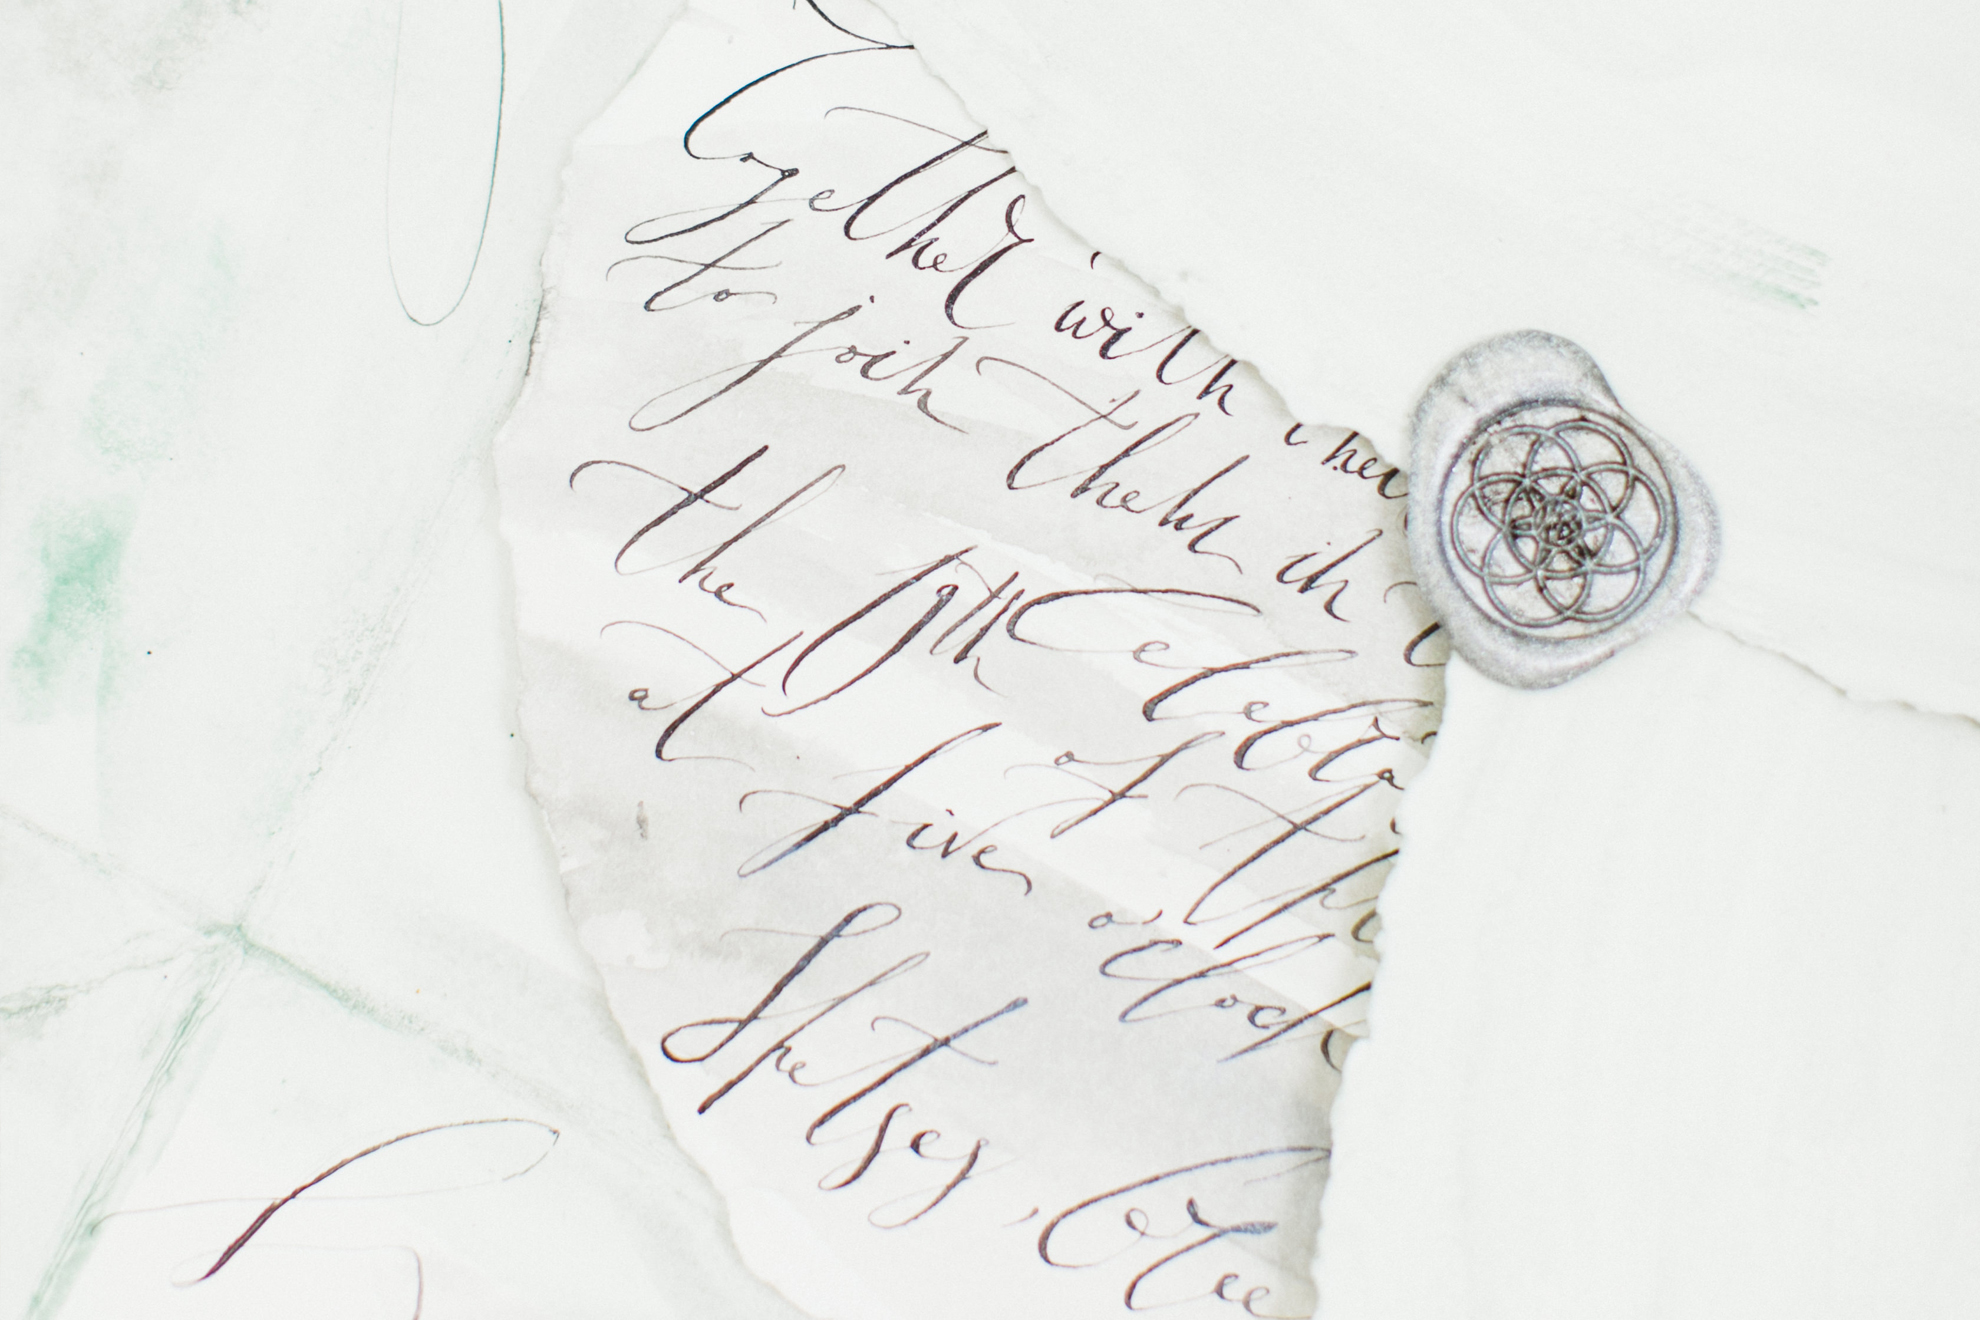 Together with their
to join them in
the 19th Celebra
of the
at five o'clock
Spetses, Gree